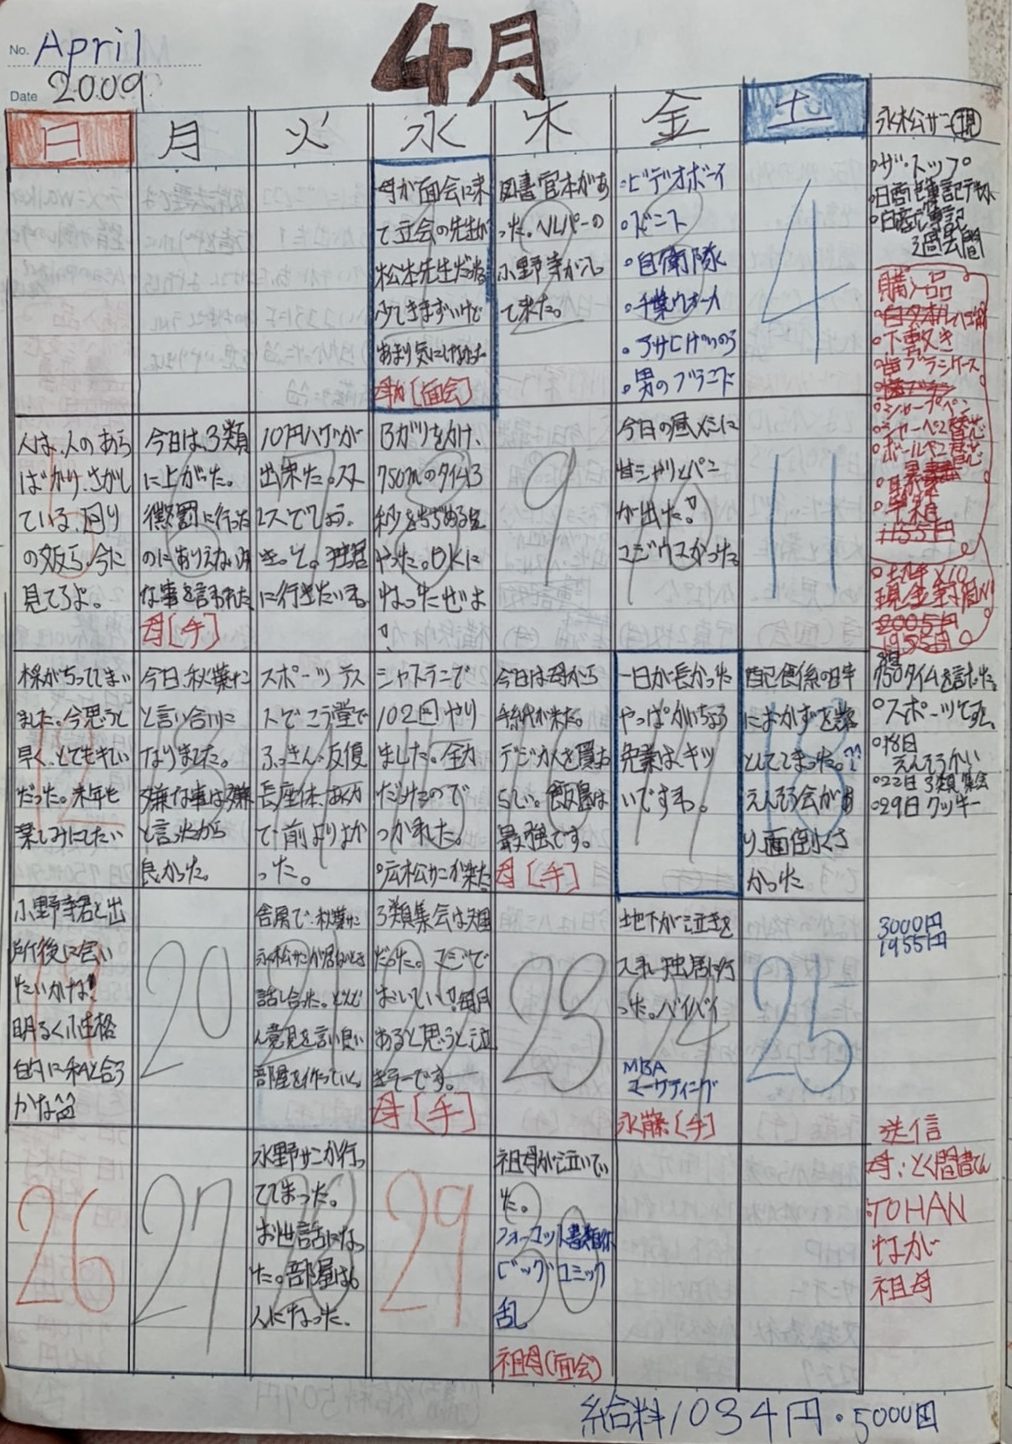 No. April
4月
Date 2009
日 月 火 水 木 金 土
永松サン(現)
母が面会に来
て立会の先生が
松本先生だから
少しきまずいけど
あまり気にしなかった
母[面会]
図書官本があ
った。ヘルパーの
小野寺が入っ
て来た。
2
3
・ビデオボーイ
・ドニート
・自衛隊
・千葉ウォーカー
・男のブランド
4
・ザ・トップ
・日商簿記テキスト
・日商簿記
過去問
購入品
・下敷き
・歯ブラシケース
・シャープペン
・シャーペン替芯
・ボールペン替芯
・便箋
1155円
・切手×10
現金封筒
2005円
1955円
人は、人のあら
ばかり、さがし
ている。回り
の奴ら、今に
見てろよ。
5
今日は、3類
に上がった。
懲罰に行った
のにありえない
な事を言われた
母[手]
6
10円ハゲが
出来た。スト
レスでしょう。
きっと。独居
に行きたい
7
750mのタイム3
秒をちぢめる
やった。OKに
なったぜよ
!
8
9
今日の昼メシに
甘シャリとパン
が出た!
マジウマかった
10
11
桜がちってしまい
ました。今思うと
早く、とてもキレイ
だった。来年も
楽しみにしたい
12
今日、秋葉に
と言い合いに
なりました。
嫌な事は嫌
と言ったから
良かった。
13
スポーツテス
トでこう堂で
ふっきん、反復
長座体、あくりょく
で前よりよか
った。
14
シャトランで
102回やり
ました。全力
だしたので
つかれた。
・広松サンが来た
15
今日は母から
手紙が来た。
デジカメを買お
らしい。飯島は
最強です。
母[手]
16
一日が長かった
やっぱかいちょう
作業は、キツ
いですね。
17
配食係の時
におかずを
としてしまった。
えんそう会があ
り、面倒くさ
かった
18
750タイムを計った。
・スポーツテスト
・18日
えんそうかい
・22日 3類集会
・29日 クッキー
小野寺君と出
所後に会い
たいかな!
明るく性格
的に私と合う
かな
19
20
舎房で、秋葉に
永松サンが居ないとき
話し合った。どんど
ん意見を言い良い
部屋を作っていく。
21
3類集会は短
だった。マジで
おいしい!毎月
あると思うと泣
きそーです。
母[手]
22
23
地下が泣きを
入れ独居に行
った。バイバイ
MBA
マーケティング
永藤[手]
24
25
3000円
1955円
26
27
水野サンが行っ
てしまった。
お世話になっ
た。部屋は6
人になった。
28
29
祖母が泣いてい
た。
フォーマット書類
ビッグコミック
乱
祖母(面会)
30
送信
母:とく間書てん
TOHAN
なが
祖母
給料1034円・5000円